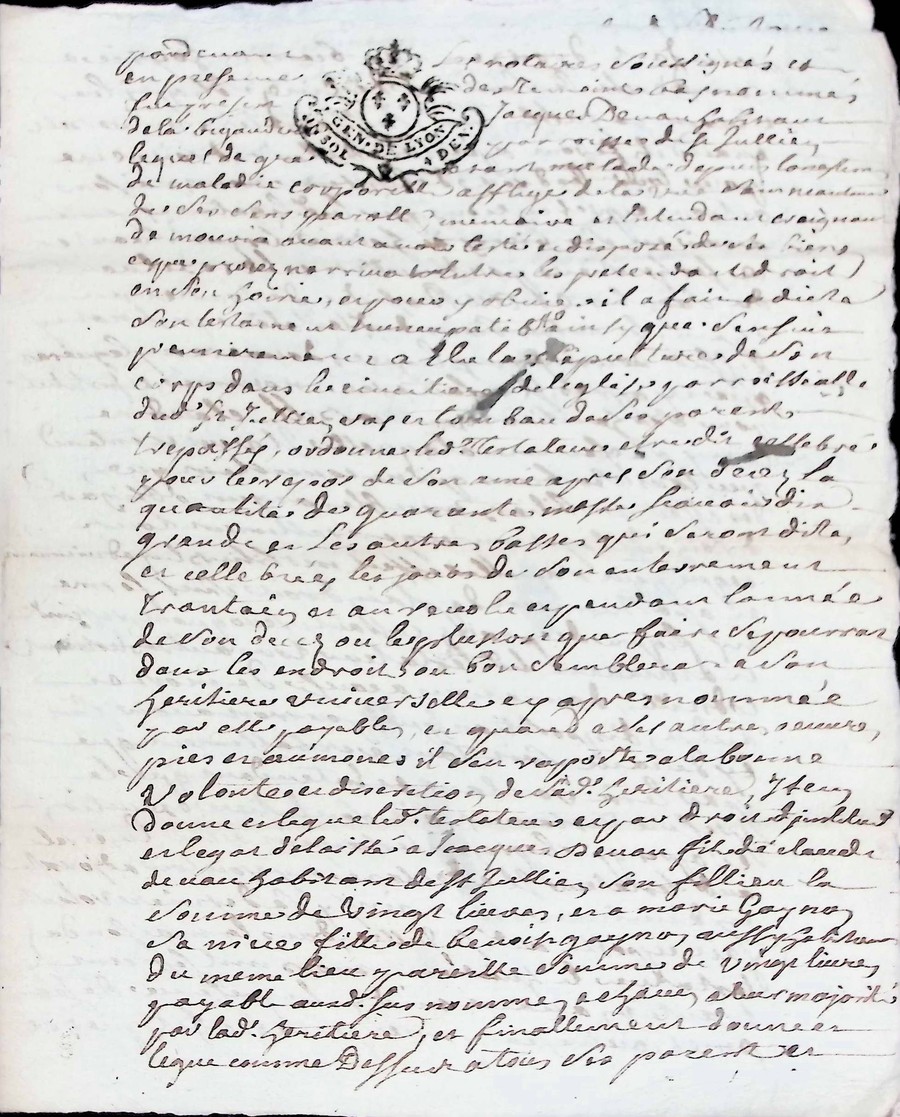 pardevant Les notaires soussignés et
en presence des Temoins bas nommés
fut present Jacques Devau habitant
GEN. DE LYON
UN SOL 4 DEN.
de la parroisse de St Jullien
lequel de gré malade depuis longtem
de maladie corporelle affligé
de ses sens parolle, memoire et Entendant craignant
de mourir avant avoir testé et disposé de ses biens
et que proces n'arrivat Entre les pretendants droit
en son hoirie, et pour y obvier il a fait et dicté
son testament nuncupatif ainsy que s'ensuit
premierement a Elu la sepulture de son
corps dans le cimetiere de leglise parroissialle
dud. St Jullien vas et tombau de ses parents
trepassés, ordonne led. Testateur etre dit et cellebré
pour le repos de son ame apres son decez la
quantité de quarante messes scavoir dix
grandes et les autres basses qui seront dites
et cellebrées les jours de son enterrement
trantain et au revolu et pendant l'année
de son decez ou le plustost que faire se pourrat
dans les endroits ou bon semblera a son
heritiere universelle cy apres nommée
par elle payables, et quand a ses autres œuvres
pies et aumones il s'en raporte a la bonne
volonté et discretion de sad. heritiere, Item
donne et legue led. testateur et par droit d'institution
et legat delaissé a Jacques Devau fils de claude
devau habitant de St Jullien son fillieu la
somme de vingt livres, et a marie Gayno
sa niece fille de benoist gayno aussy habitant
du meme lieu pareille somme de vingt livres
payable aux d. sus nommés a chacun a leur majorité
par lad. heritiere, et finallement donne et
legue comme Dessus a tous ses parents et